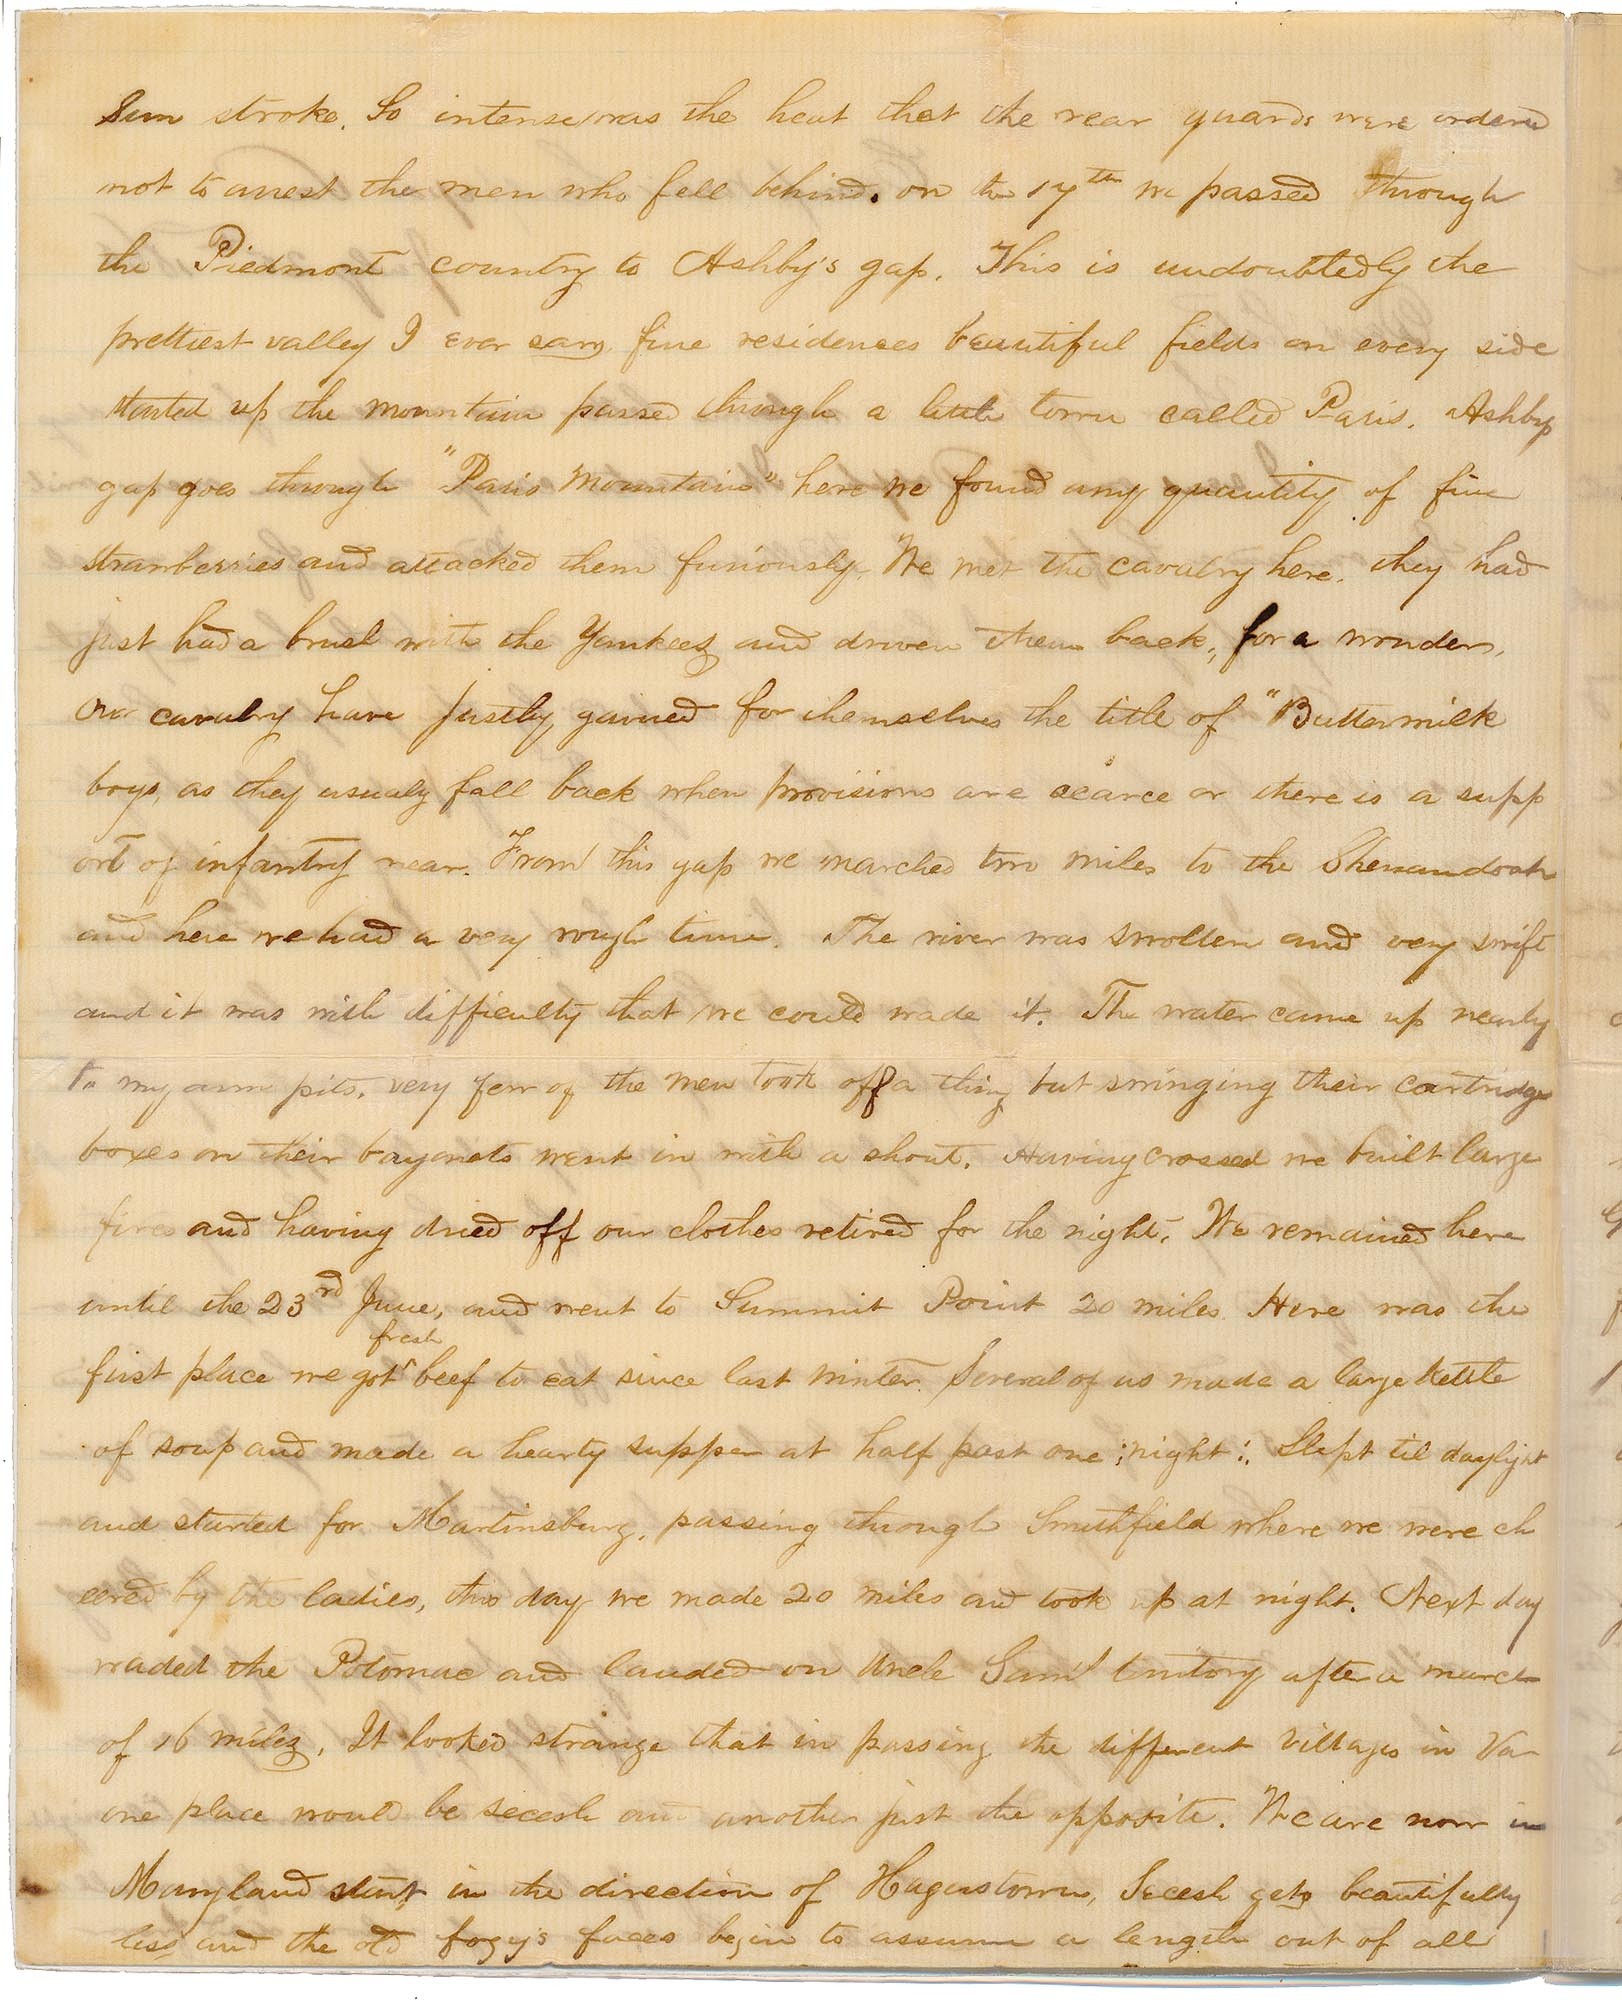 Sun stroke. So intense was the heat that the rear guards were ordered
not to arrest the men who fell behind. on the 17th we passed through
the Piedmont country to Ashby's gap. This is undoubtedly the
prettiest valley I ever saw, fine residences beautiful fields on every side
started up the mountain passed through a little town called Paris. Ashbys
gap goes through "Paris Mountain" here we found any quantity of fine
strawberries and attacked them furiously. We met the cavalry here. they had
just had a brush with the Yankees and driven them back, for a wonder,
Our cavalry have justly gained for themselves the title of "Buttermilk
boys, as they usualy fall back when provisions are scarce or there is a supp
ort of infantry near. From this gap we marched two miles to the Shenandoah
and here we had a very rough time. The river was swollen and very swift
and it was with difficulty that we could wade it. The water came up nearly
to my arm pits, very few of the men took off a thing but swinging their cartridge
boxes on their bayonets went in with a shout. Having crossed we built large
fires and having dried off our clothes retired for the night. We remained here
until the 23rd June, and went to Summit Point 20 miles. Here was the
first place we got fresh beef to eat since last winter. Several of us made a large kettle
of soup and made a hearty supper at half past one :night:. Slept til daylight
and started for Martinsburg, passing through Smithfield where we were ch
eered by the ladies, this day we made 20 miles and took up at night. Next day
waded the Potomac and landed on Uncle Sam's territory after a march
of 16 miles. It looked strange that in passing the different villages in Va
one place would be secesh and another just the opposite. We are now in
Maryland start in the direction of Hagerstown, Secesh gets beautifully
less and the old fogy's faces begin to assume a length out of all